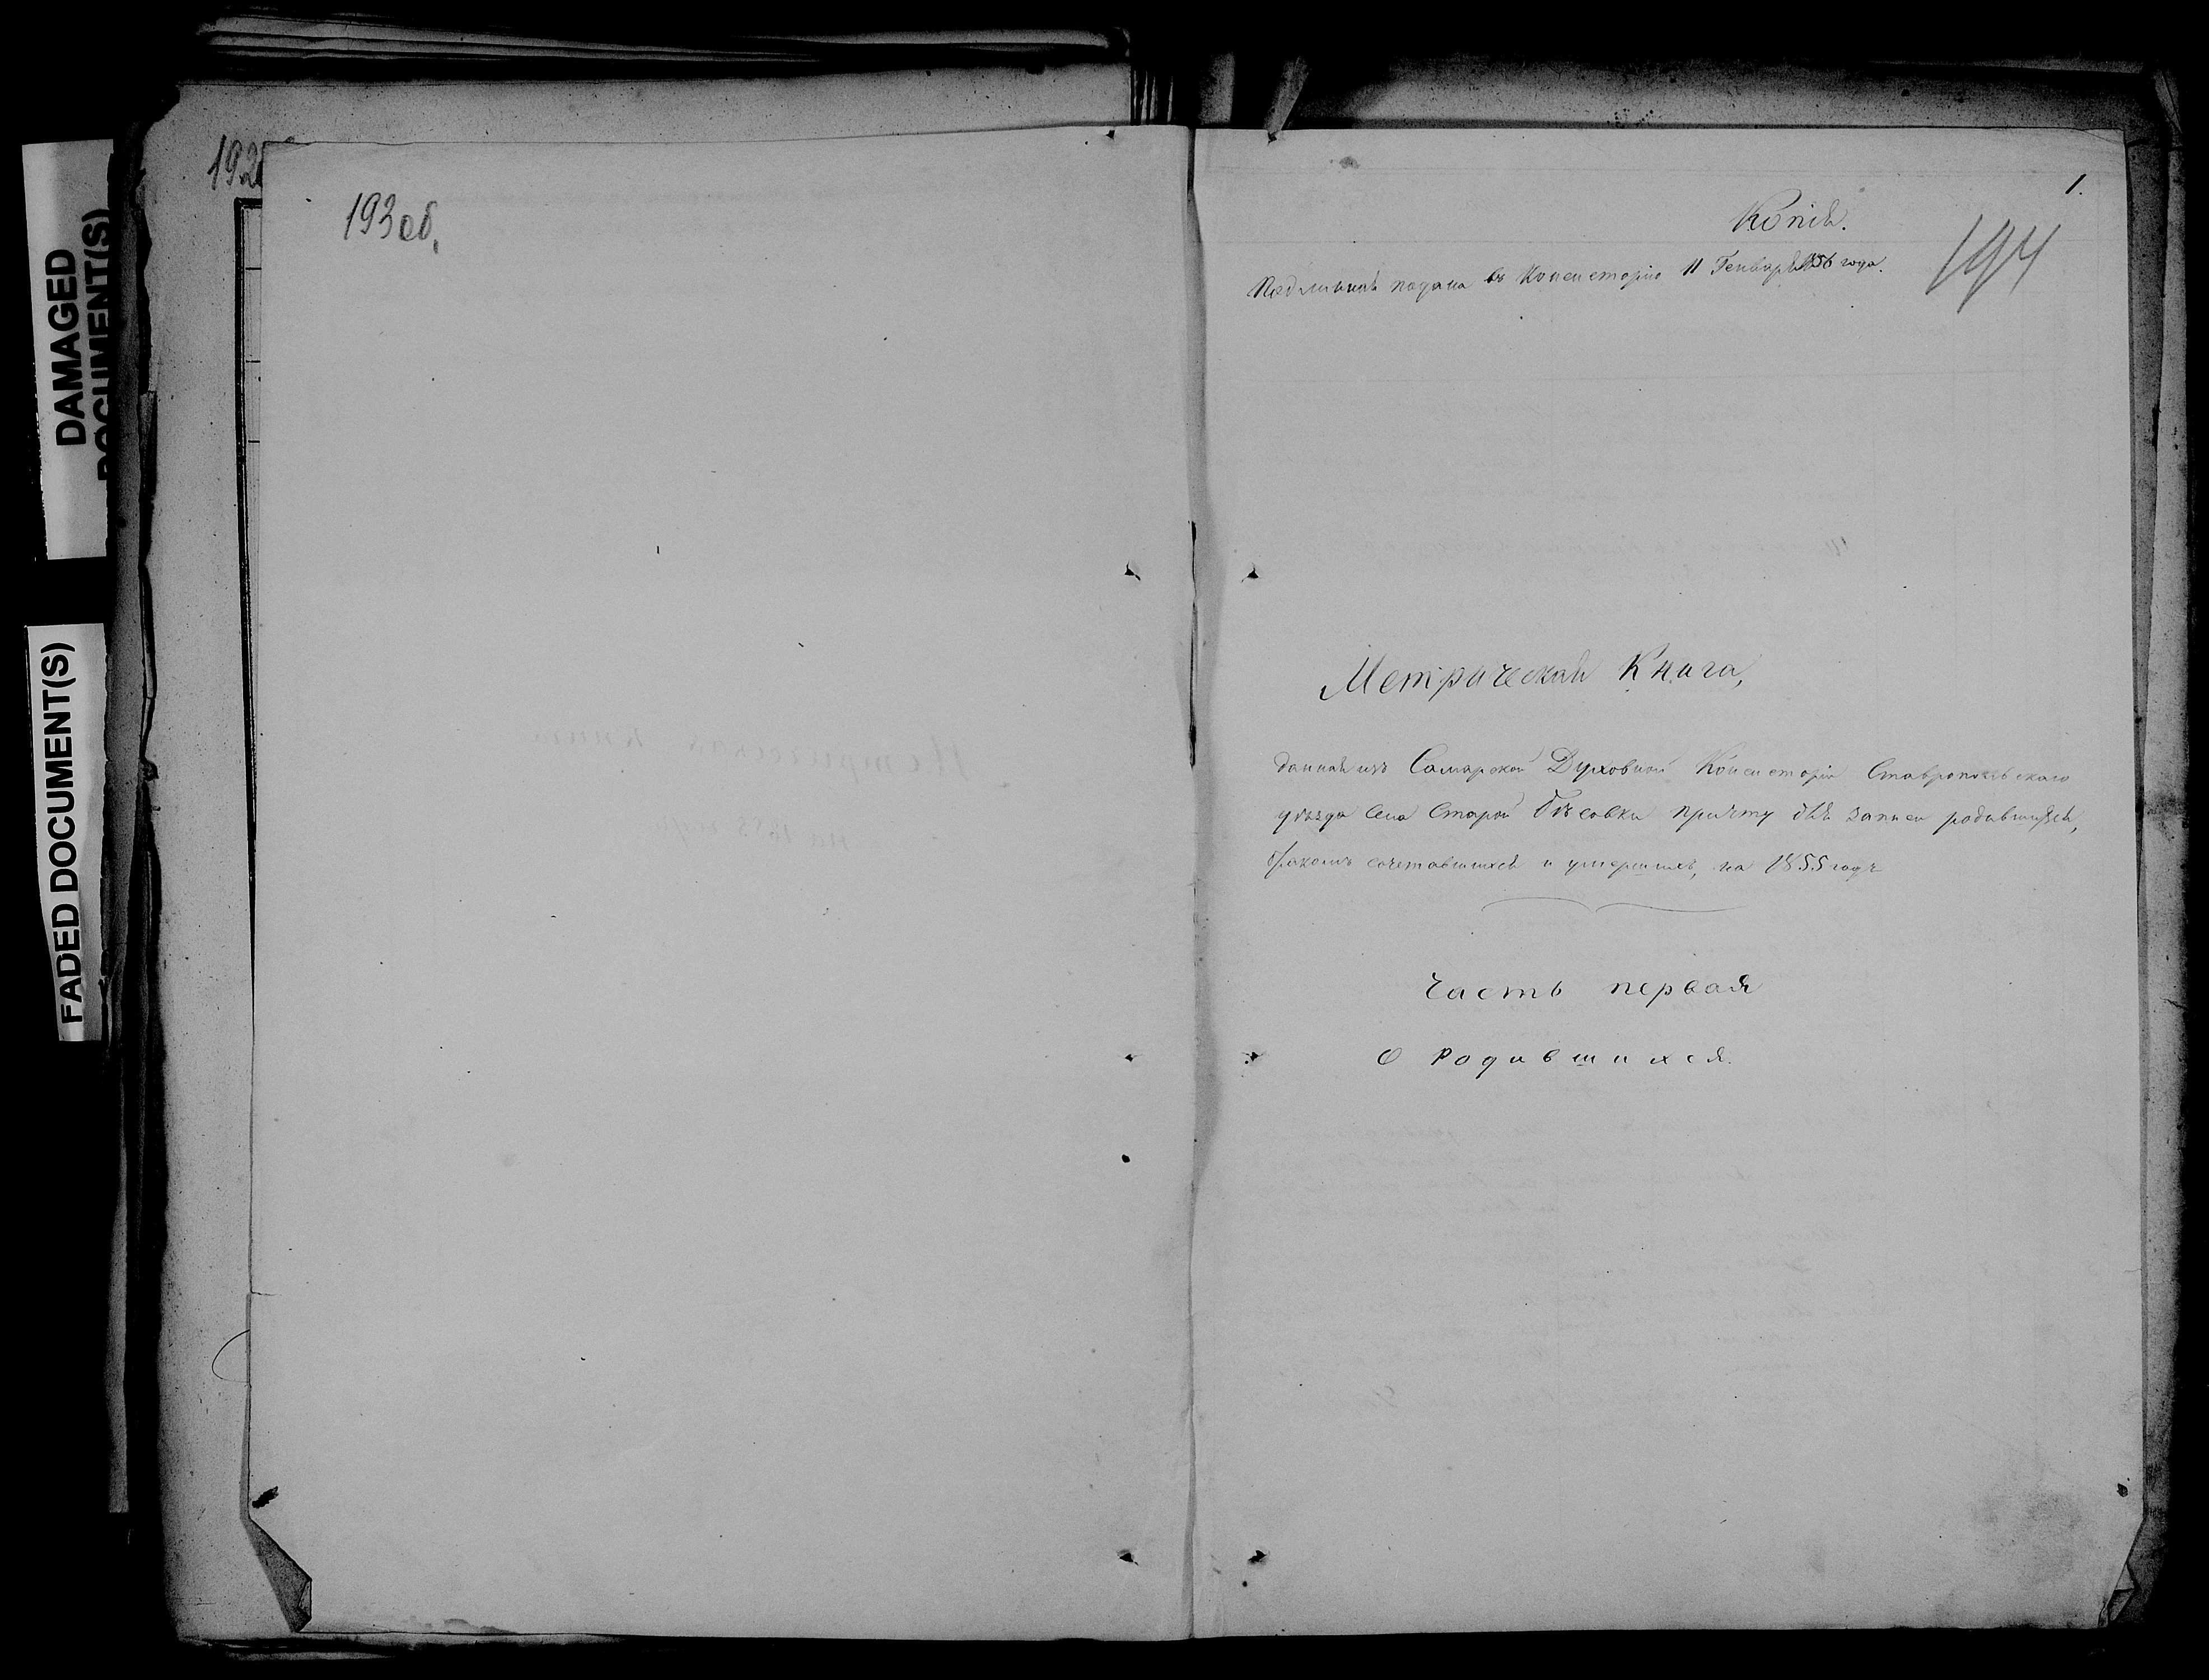 DAMAGED
DOCUMENT(S)
FADED DOCUMENT(S)
193об.
1.
194
Копія.
Подлинная подана въ Консисторію 11 Генваря 1856 года.
Метрическая Книга,
данная изъ Самарской Духовной Консисторіи Ставропольскаго
уѣзда села Старой Бѣсовки причту для записи родившихся,
бракомъ сочетавшихся и умершихъ, на 1855 годъ
Часть первая
О Родившихся.